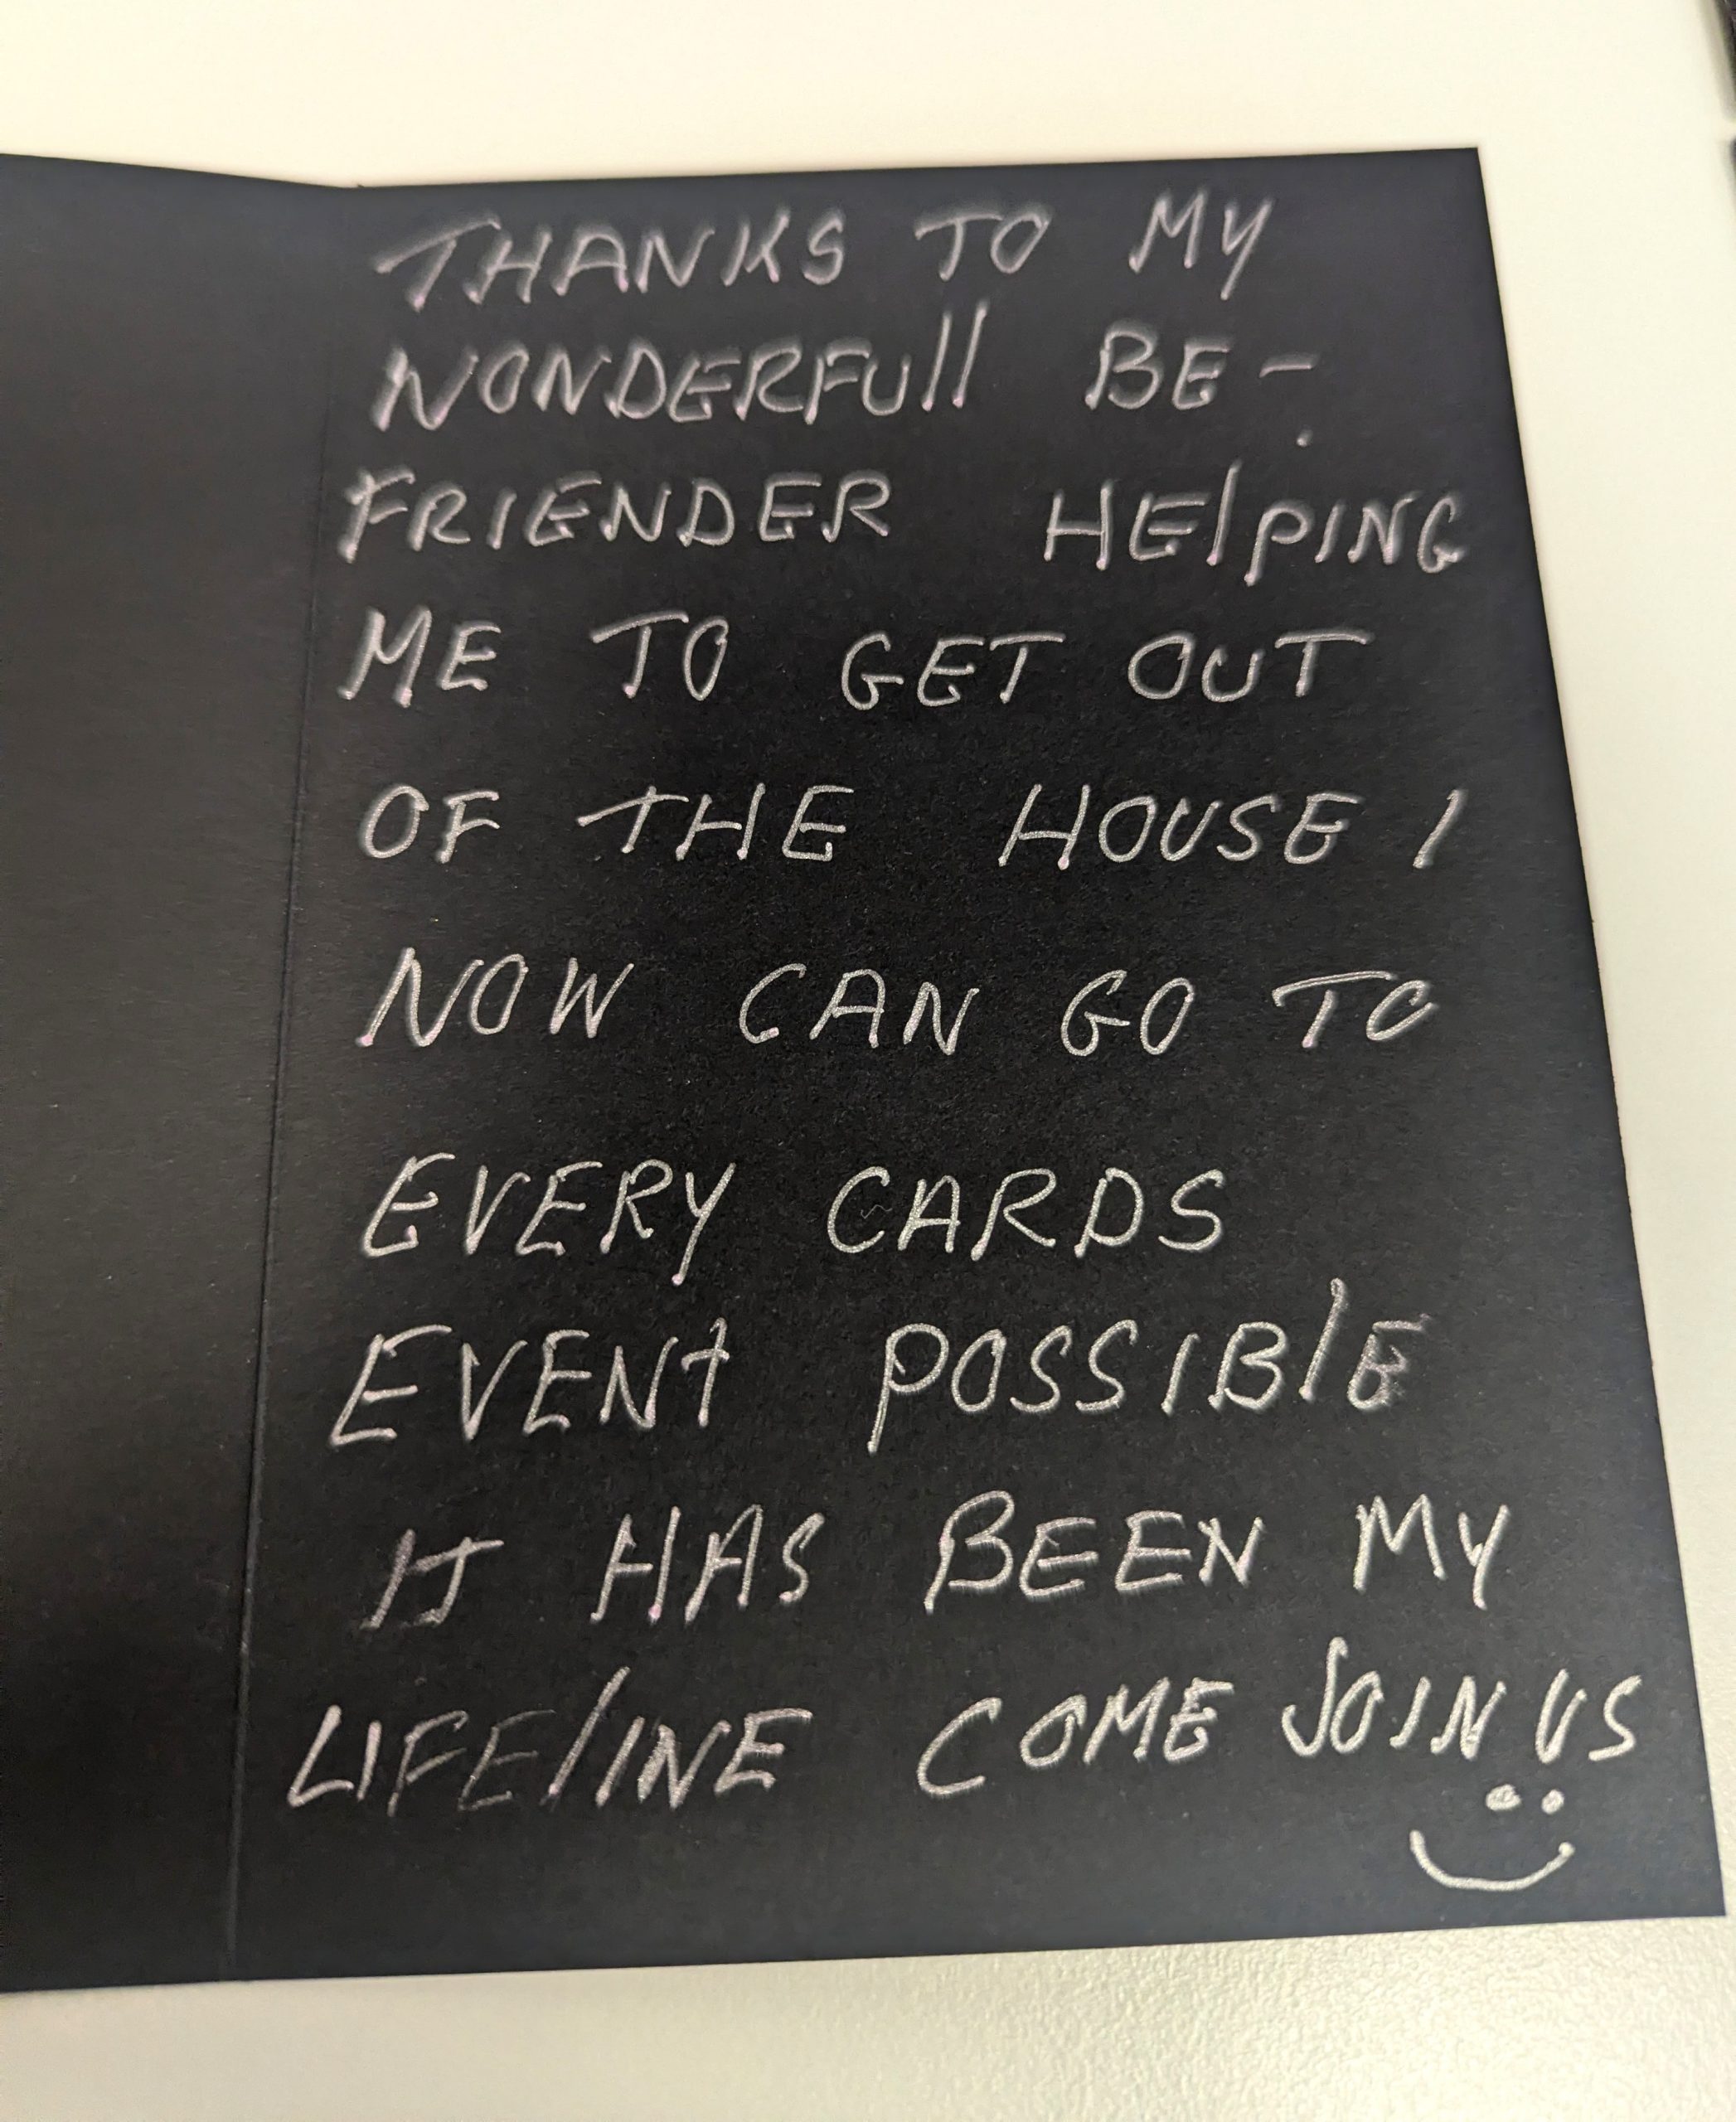 THANKS TO MY
WONDERFUll BE-
FRIENDER HElPING
ME TO GET OUT
OF THE HOUSE I
NOW CAN GO TO
EVERY CARDS
EVENt POSSIBlE
It HAS BEEN MY
LIFElINE COME JOIN US